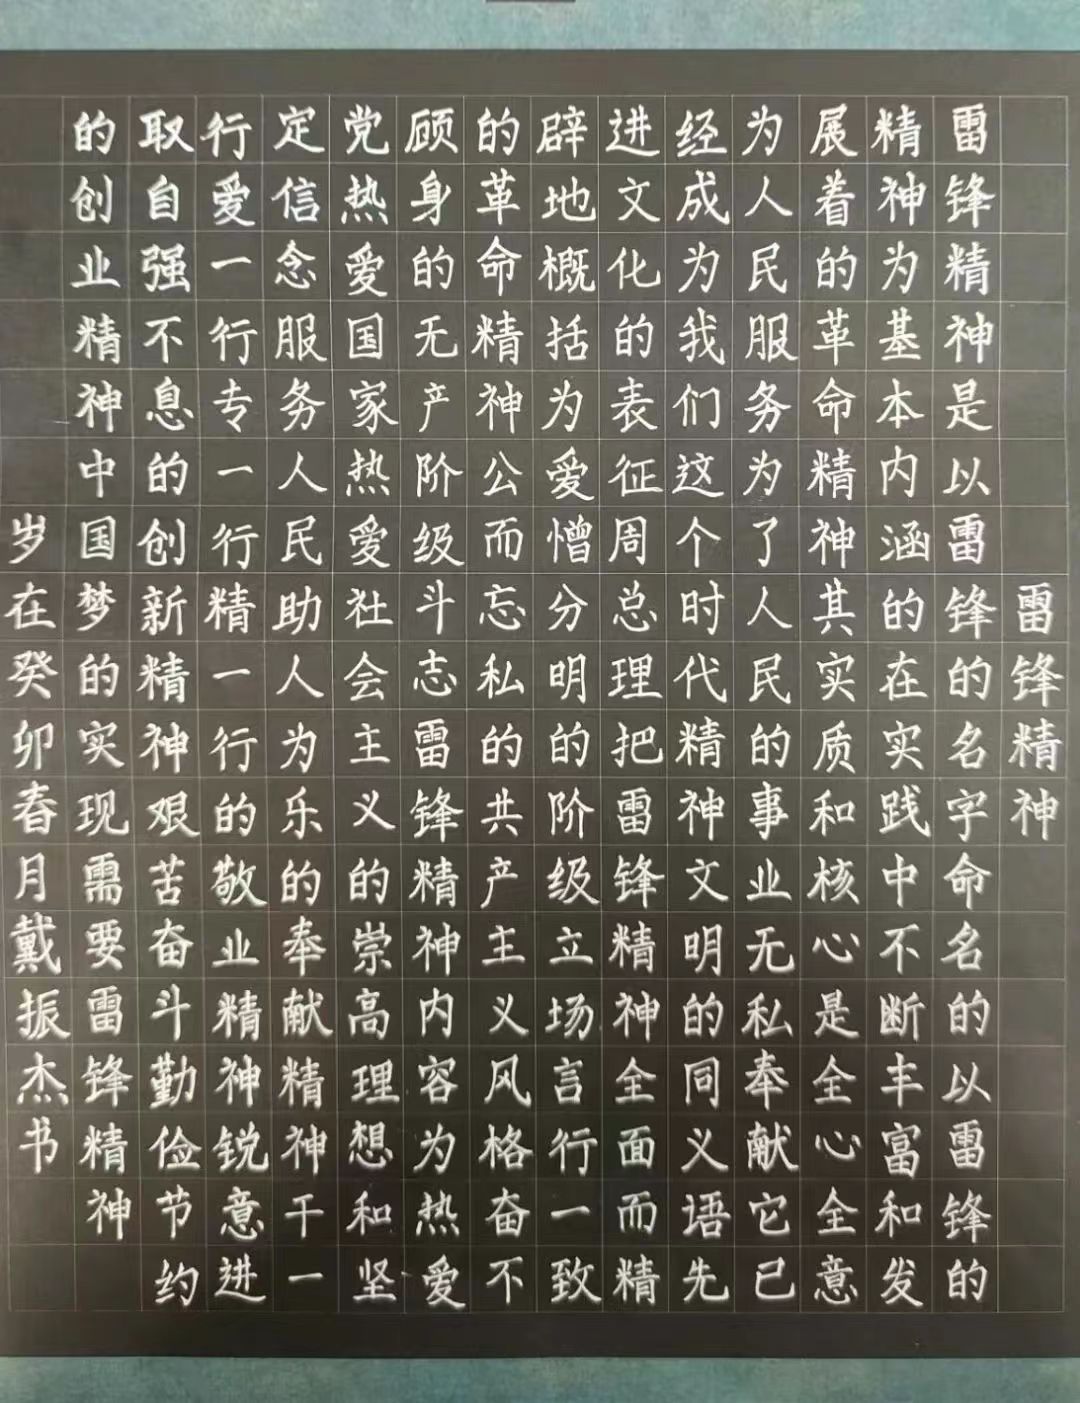 雷锋精神
雷锋精神是以雷锋的名字命名的以雷锋的
精神为基本内涵的在实践中不断丰富和发
展着的革命精神其实质和核心是全心全意
为人民服务为了人民的事业无私奉献它已
经成为我们这个时代精神文明的同义语先
进文化的表征周总理把雷锋精神全面而精
辟地概括为爱憎分明的阶级立场言行一致
的革命精神公而忘私的共产主义风格奋不
顾身的无产阶级斗志雷锋精神内容为热爱
党热爱国家热爱社会主义的崇高理想和坚
定信念服务人民助人为乐的奉献精神干一
行爱一行专一行精一行的敬业精神锐意进
取自强不息的创新精神艰苦奋斗勤俭节约
的创业精神中国梦的实现需要雷锋精神
岁在癸卯春月戴振杰书